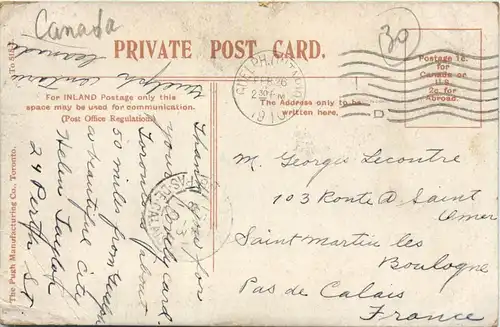 Canada
30
To 5151
PRIVATE POST CARD.
GUELPH, ONTARIO
FEB 26
2 30 PM
1910
Postage 1c.
for
Canada or
U.S.
2c. for
Abroad.
For INLAND Postage only this
space may be used for communication.
(Post Office Regulations)
The Address only to be
written here.
Guelph Ontario
Canada
Thank you for
your lovely card.
Toronto is about
50 miles from Guelph
a beautiful city
Helen Taylor
24 Perth St.
M. Georges Lecontre
103 Route A Saint
Omer
Saint Martin les
Boulogne
Pas de Calais
France
The Pugh Manufacturing Co., Toronto.